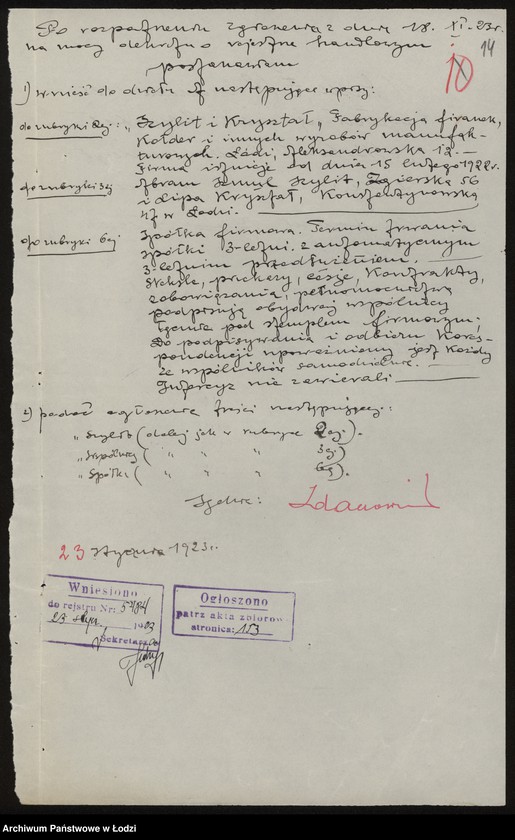 Po rozpatrzeniu zgłoszenia z dnia 18. XI. 23 r.
na mocy dekretu o rejestrze handlowym
postanawiam
10
14
1) wnieść do działu A następujące wpisy:
do rubryki 2ej: „Szylit i Kryształ, Fabrykacja firanek,
kołder i innych wyrobów manufak-
turowych. Łódź, Aleksandrowska 12. —
Firma istnieje od dnia 15 lutego 1922 r.
do rubryki 3ej Abram Szylit, Zgierska 56
i Lipa Kryształ, Konstantynowska
47 w Łodzi.
do rubryki 6ej Spółka firmowa. Termin trwania
spółki 3-letni z automatycznym
3-letnim przedłużeniem.
Weksle, czesje, kontrakty,
zobowiązania, pełnomocnictwa
podpisują obydwaj wspólnicy
łącznie pod stemplem firmowym;
do podpisywania i odbioru kores-
pondencji upoważniony jest każdy
ze wspólników samodzielnie.
Intercyz nie zawierali
2) podać ogłoszenie treści następującej:
„Szylit (dalej jak w rubryce 2ej).
„Wspólnicy ( „ „ „ 3ej)
„Spółka ( „ „ „ 6ej).
Sędzia:
23 stycznia 1923 r.
Wniesiono
do rejestru Nr:
23 stycz. 1923
Sekretarz
Ogłoszono
patrz akta zbiorow
stronica: 153
Archiwum Państwowe w Łodzi